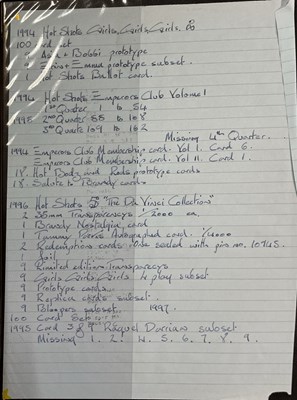 1994 Hot Shots Girls, Girls, Girls
100 card set
9 Ask a Bobbi prototype
9 Erins + Emma prototype subset.
1 Hot Shots Ballot card.
1994 Hot Shots Emperors Club Volume 1
1st Quarter 1 to 54
1995 2nd Quarter 55 to 108
3rd Quarter 109 to 162
Missing 4th Quarter.
1994 Emperors Club Membership card. Vol I. Card 6.
Emperors Club Membership card. Vol II. Card 1.
18. Hot Bodz and Rods prototype cards
18. Salute to Brandy cards
1996 Hot Shots "The Da Vinci Collection"
2 35mm Transparencys /2000 ea
1 Brandy Nostalgia card
1 Autographed card. 1/4000
2 Redemptions cards. One sealed with pin no. 10745.
1 Foil
9 Limited edition Transparencys
9 Girls Girls Girls N play subset
9 Prototype cards
9 Replica cards subset.
9 Bloopers subset. 1997.
100 Card Set
1995 Card 3 & Raquel Darrian subset
Missing 1. 2. 4. 5. 6. 7. 8. 9.